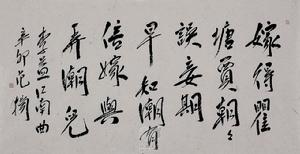 嫁得瞿
塘賈朝々
誤妾期
早知潮有
信嫁與
弄潮兒
李益江南曲
辛卯